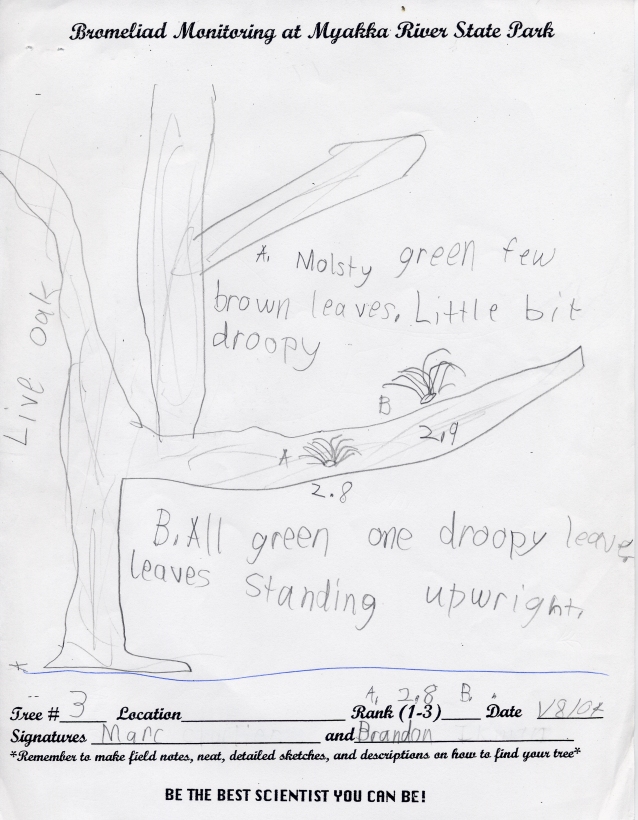 Bromeliad Monitoring at Myakka River State Park
A. Molsty green few
brown leaves. Little bit
droopy
Live oak
B
2.9
A
2.8
B. All green one droopy leave
leaves standing upwright.
A. 2.8 B.
Tree # 3 Location Rank (1-3) Date
Signatures Marc and Brandon
*Remember to make field notes, neat, detailed sketches, and descriptions on how to find your tree*
BE THE BEST SCIENTIST YOU CAN BE!